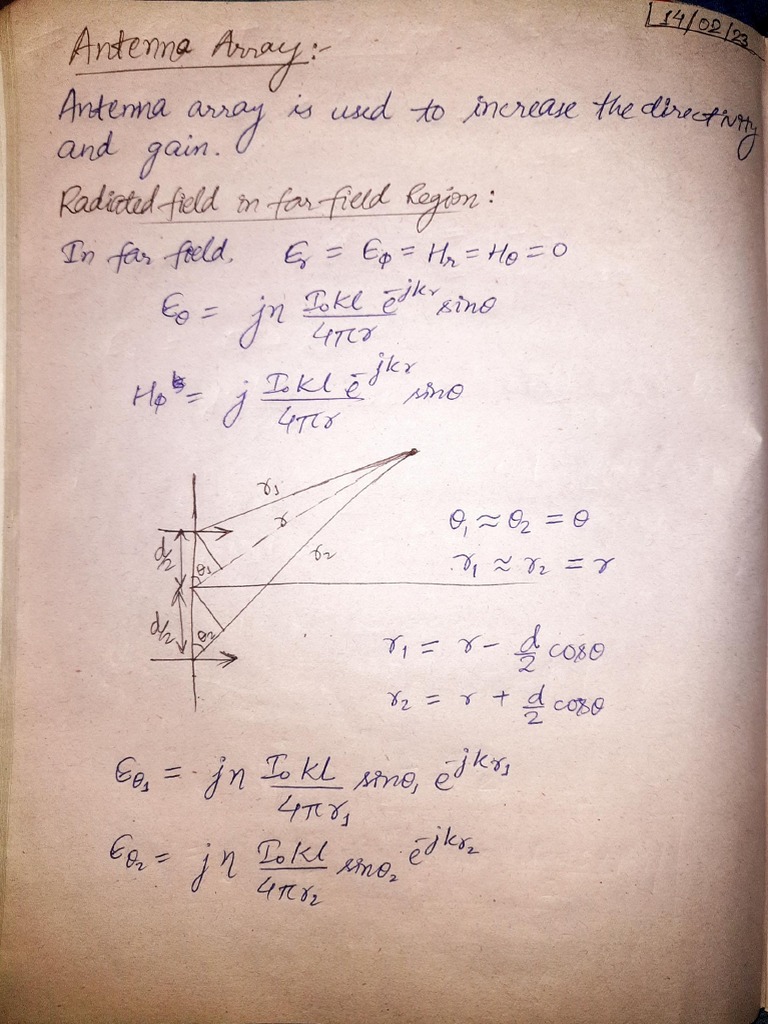 14/02/23
Antenna Array:-
Antenna array is used to increase the directivity
and gain.
Radiated field in far field Region:
In far field, Er = Eφ = Hr = Hθ = 0
Eθ = jη I₀kl e^-jkr / 4πr sinθ
Hφ = j I₀kl e^-jkr / 4πr sinθ
r₁
r
r₂
d/2
θ₁
d/2
θ₂
θ₁ ≈ θ₂ = θ
r₁ ≈ r₂ = r
r₁ = r - d/2 cosθ
r₂ = r + d/2 cosθ
Eθ₁ = jη I₀kl / 4πr₁ sinθ₁ e^-jkr₁
Eθ₂ = jη I₀kl / 4πr₂ sinθ₂ e^-jkr₂